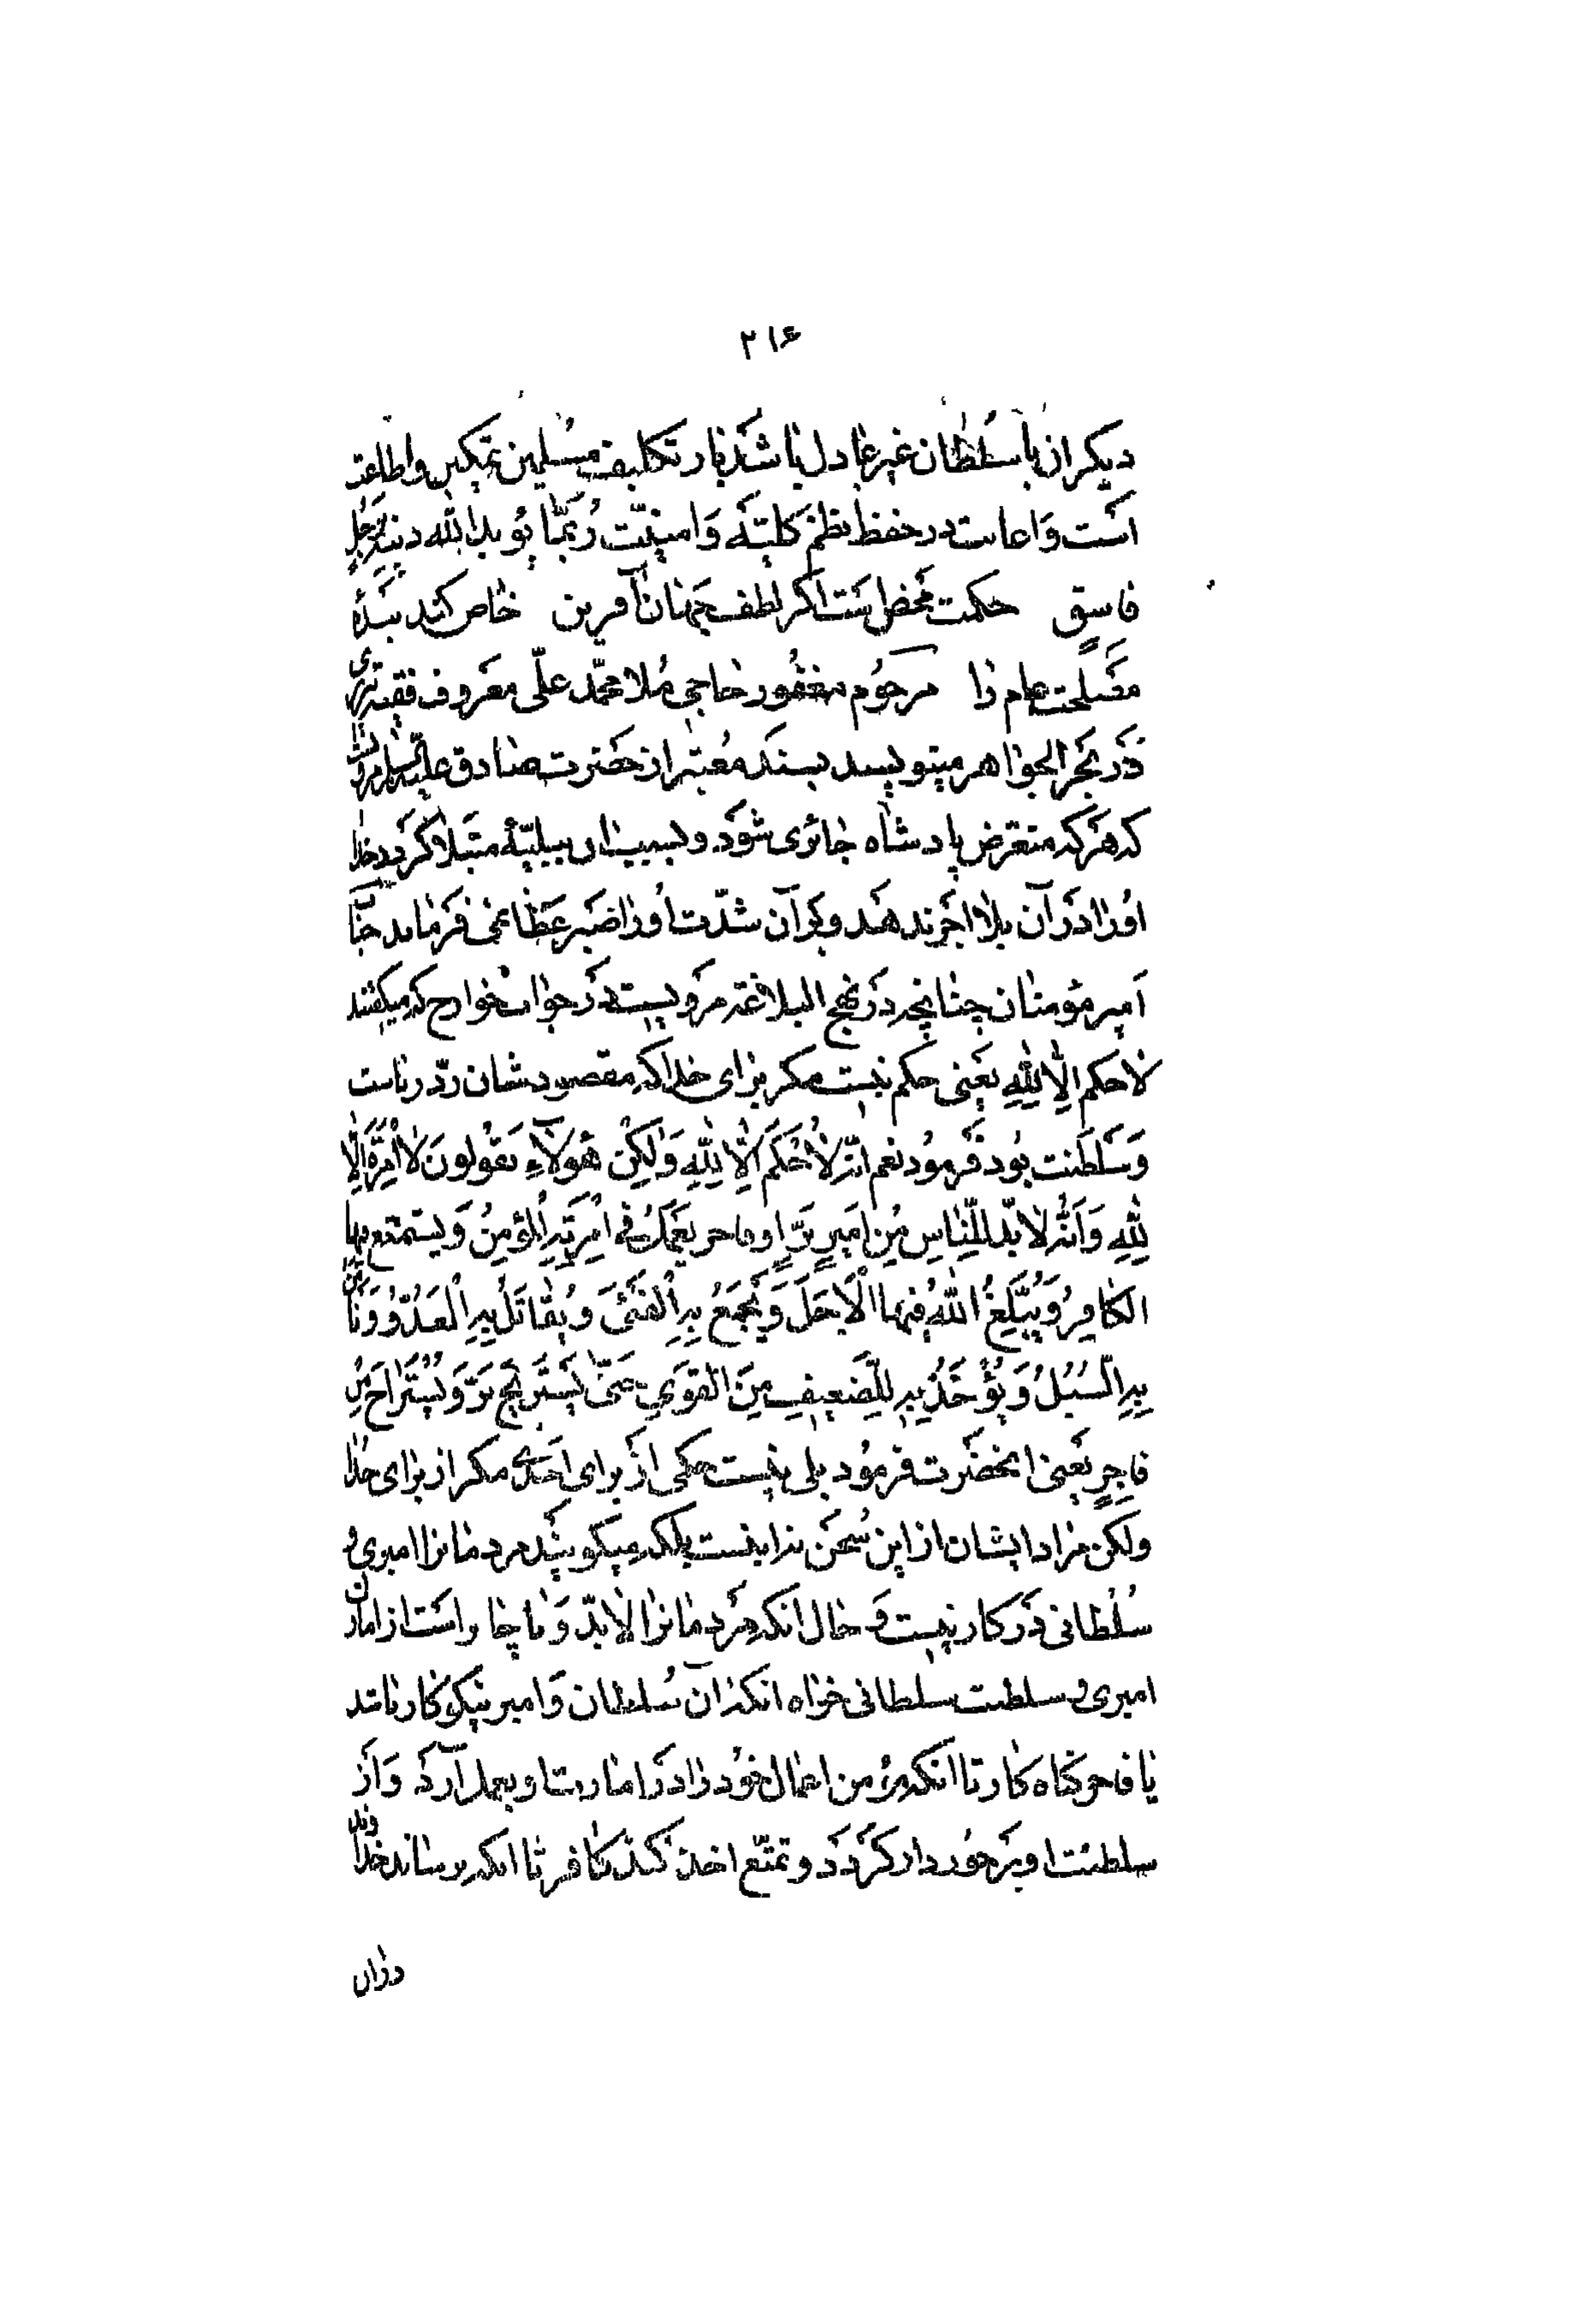 ۲۱۶
دیکر ان با سلطان غیر عادل باشد باز تکلیف مسلمین تمکین و اطاعت
است و اعانت در حفظ نظم کلیّه و امنیّت رُبَّما یُؤیّد الله دینه برجلٍ
فاسقٍ حکمت محض است اکر لطف جهان آفرین خاص کند بندهٔ
مصلحت عام را مرحوم مغفور حاجی مُلا محمّد علّی معروف فقیه
در بحر الجواهر مینویسد بسند معتبر از حضرت صادق علیه السلام مرویست
که هر که متعرض پادشاه جائری شود و بسبب ان ببلیّهٔ مبتلا کردد خدا
اورا در آن بلا اجر ندهد و بر آن شدّت اورا صبر عطا نمی فرماید جناب
امیر مؤمنان چنانچه در نهج البلاغه مرویست در جواب خوارج که میکفتند
لا حکم اِلّا لِلّهِ یعنی حکم نیست مکر برای خدا که مقصودشان ردّ ریاست
وَ سلطنت بود فرمود نعم انّه لا حُکمَ اِلّا لِلّهِ وَ لٰکِنْ هٰؤلاءِ یَقُولونَ لا اِمْرَةَ اِلّا
لِلّهِ وَ اَنَّه لا بدّ للِنّاسِ مِن اَمیرٍ بَرٍّ او فاجر یَعمَلُ فی اِمْرَتِهِ اْلمُؤمِنُ وَ یستمتع فیها
الکافِرُ وَ یُبَلِّغُ اللهُ فیها الْاَجَلَ وَ یُجْمَعُ بِهِ اْلفَیْئُ وَ یُقاتَلُ بِهِ اْلعَدُوُّ وَ تأمن
بِهِ السُّبُلُ وَ یُؤخَذُ بِهِ لِلضَّعیفِ مِنَ القَوِیِّ حَتّی یَستَریحَ بَرٌّ وَ یُسْتَراحَ مِن
فاجِرٍ یعنی انحضرت فرمود بلی نیست حکمی از برای احدی مکر از برای خدا
ولکن مراد ایشان از این سُخن نه اینست بلکه میکویند مردمانرا امیری و
سُلطانی در کار نیست و حال انکه مردمانرا لابدّ و ناچار است از امارت
امیری و سلطنت سلطانی خواه انکه ان سُلطان و امیر نیکوکار باشد
یا فاجر کناه کار تا انکه مؤمن اعمال خود را در امارت او بعمل آرد وَ از
سلطنت او برخوردار کردد و تمتّع اخذ کند کافر تا انکه برساند خداوند
در ان